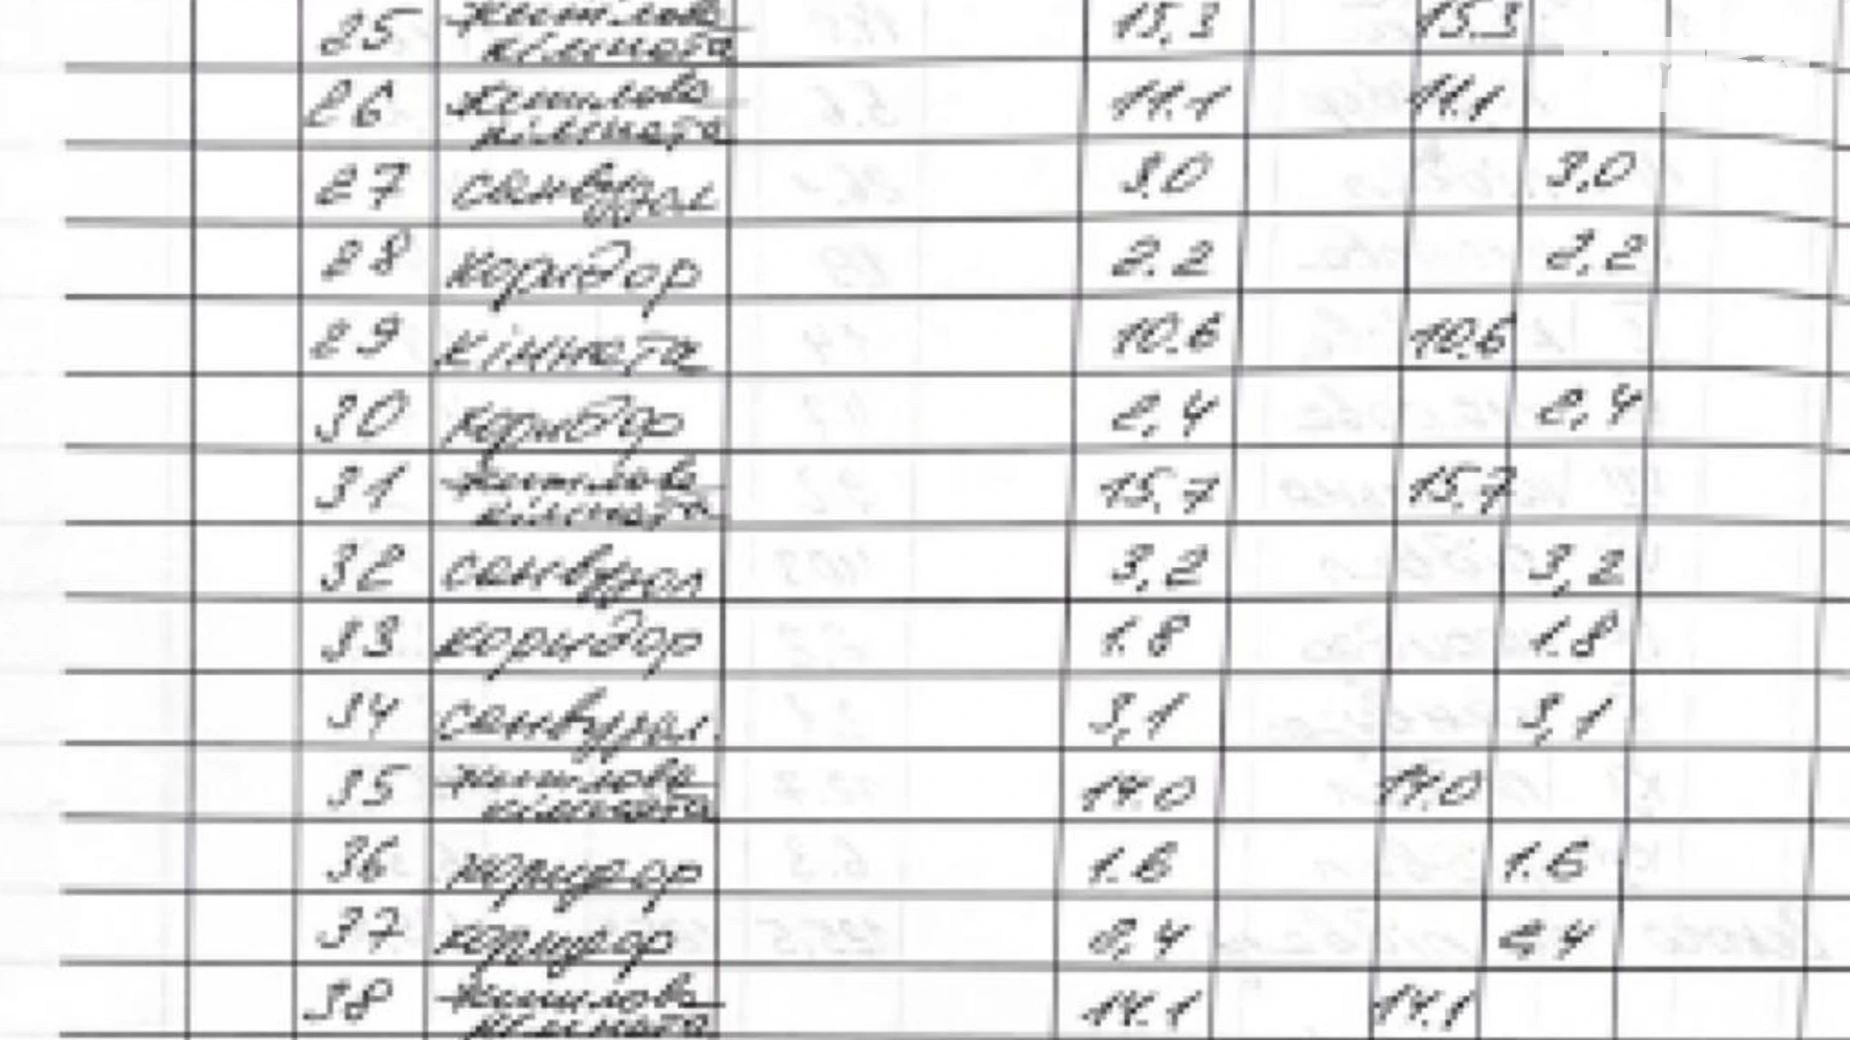 25 житлова 15,3 15.3
кімната
26 житлова 11.1 11.1
кімната
27 санвузол 3.0 3,0
28 коридор 2.2 2,2
29 кімната 10.6 10.6
30 коридор 2,4 2,4
31 житлова 15,7 15.7
кімната
32 санвузол 3,2 3,2
33 коридор 1.8 1.8
34 санвузол 3,1 3,1
35 житлова 14.0 14.0
кімната
36 коридор 1.6 1.6
37 коридор 2,4 2,4
38 житлова 14.1 14.1
кімната